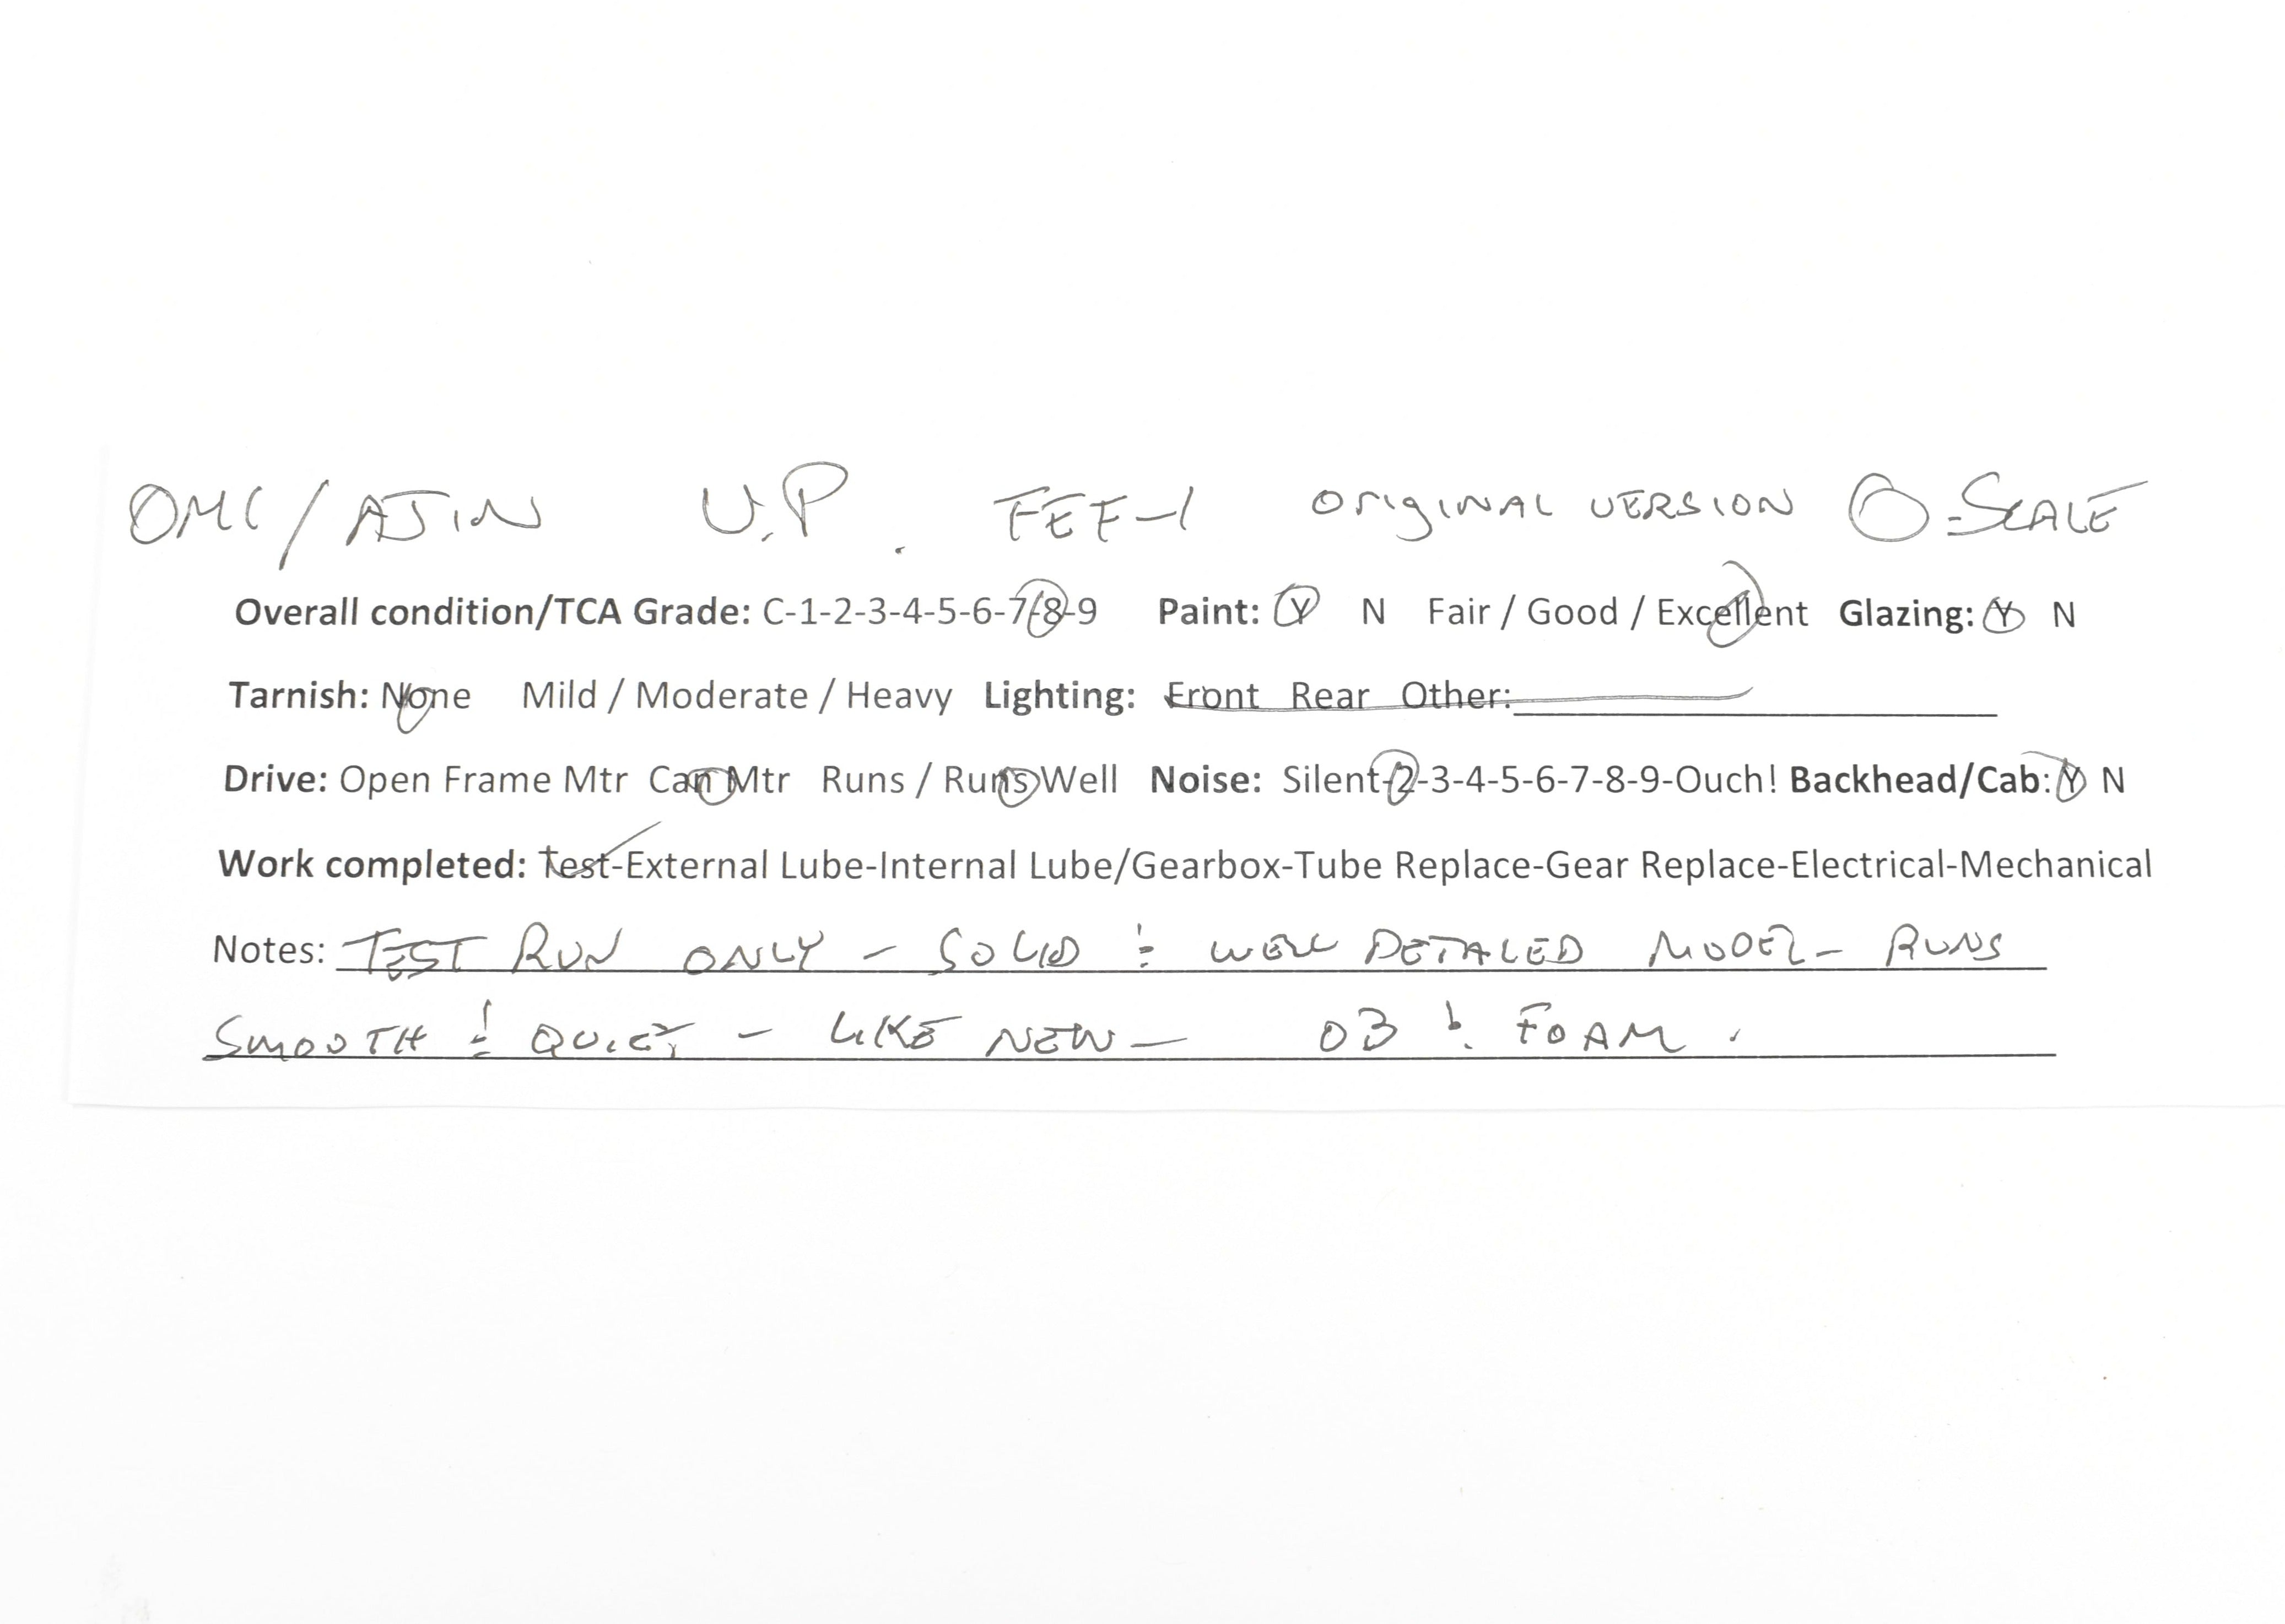 OMC/AJIN U.P. FEF-1 ORIGINAL VERSION O-SCALE
Overall condition/TCA Grade: C-1-2-3-4-5-6-7-8-9 Paint: Y N Fair / Good / Excellent Glazing: Y N
Tarnish: None Mild / Moderate / Heavy Lighting: Front Rear Other:
Drive: Open Frame Mtr Can Mtr Runs / Runs Well Noise: Silent-2-3-4-5-6-7-8-9-Ouch! Backhead/Cab: Y N
Work completed: Test-External Lube-Internal Lube/Gearbox-Tube Replace-Gear Replace-Electrical-Mechanical
Notes: TEST RUN ONLY - SOLID & WELL DETALED MODEL - RUNS
SMOOTH & QUIET - LIKE NEW - OB & FOAM.